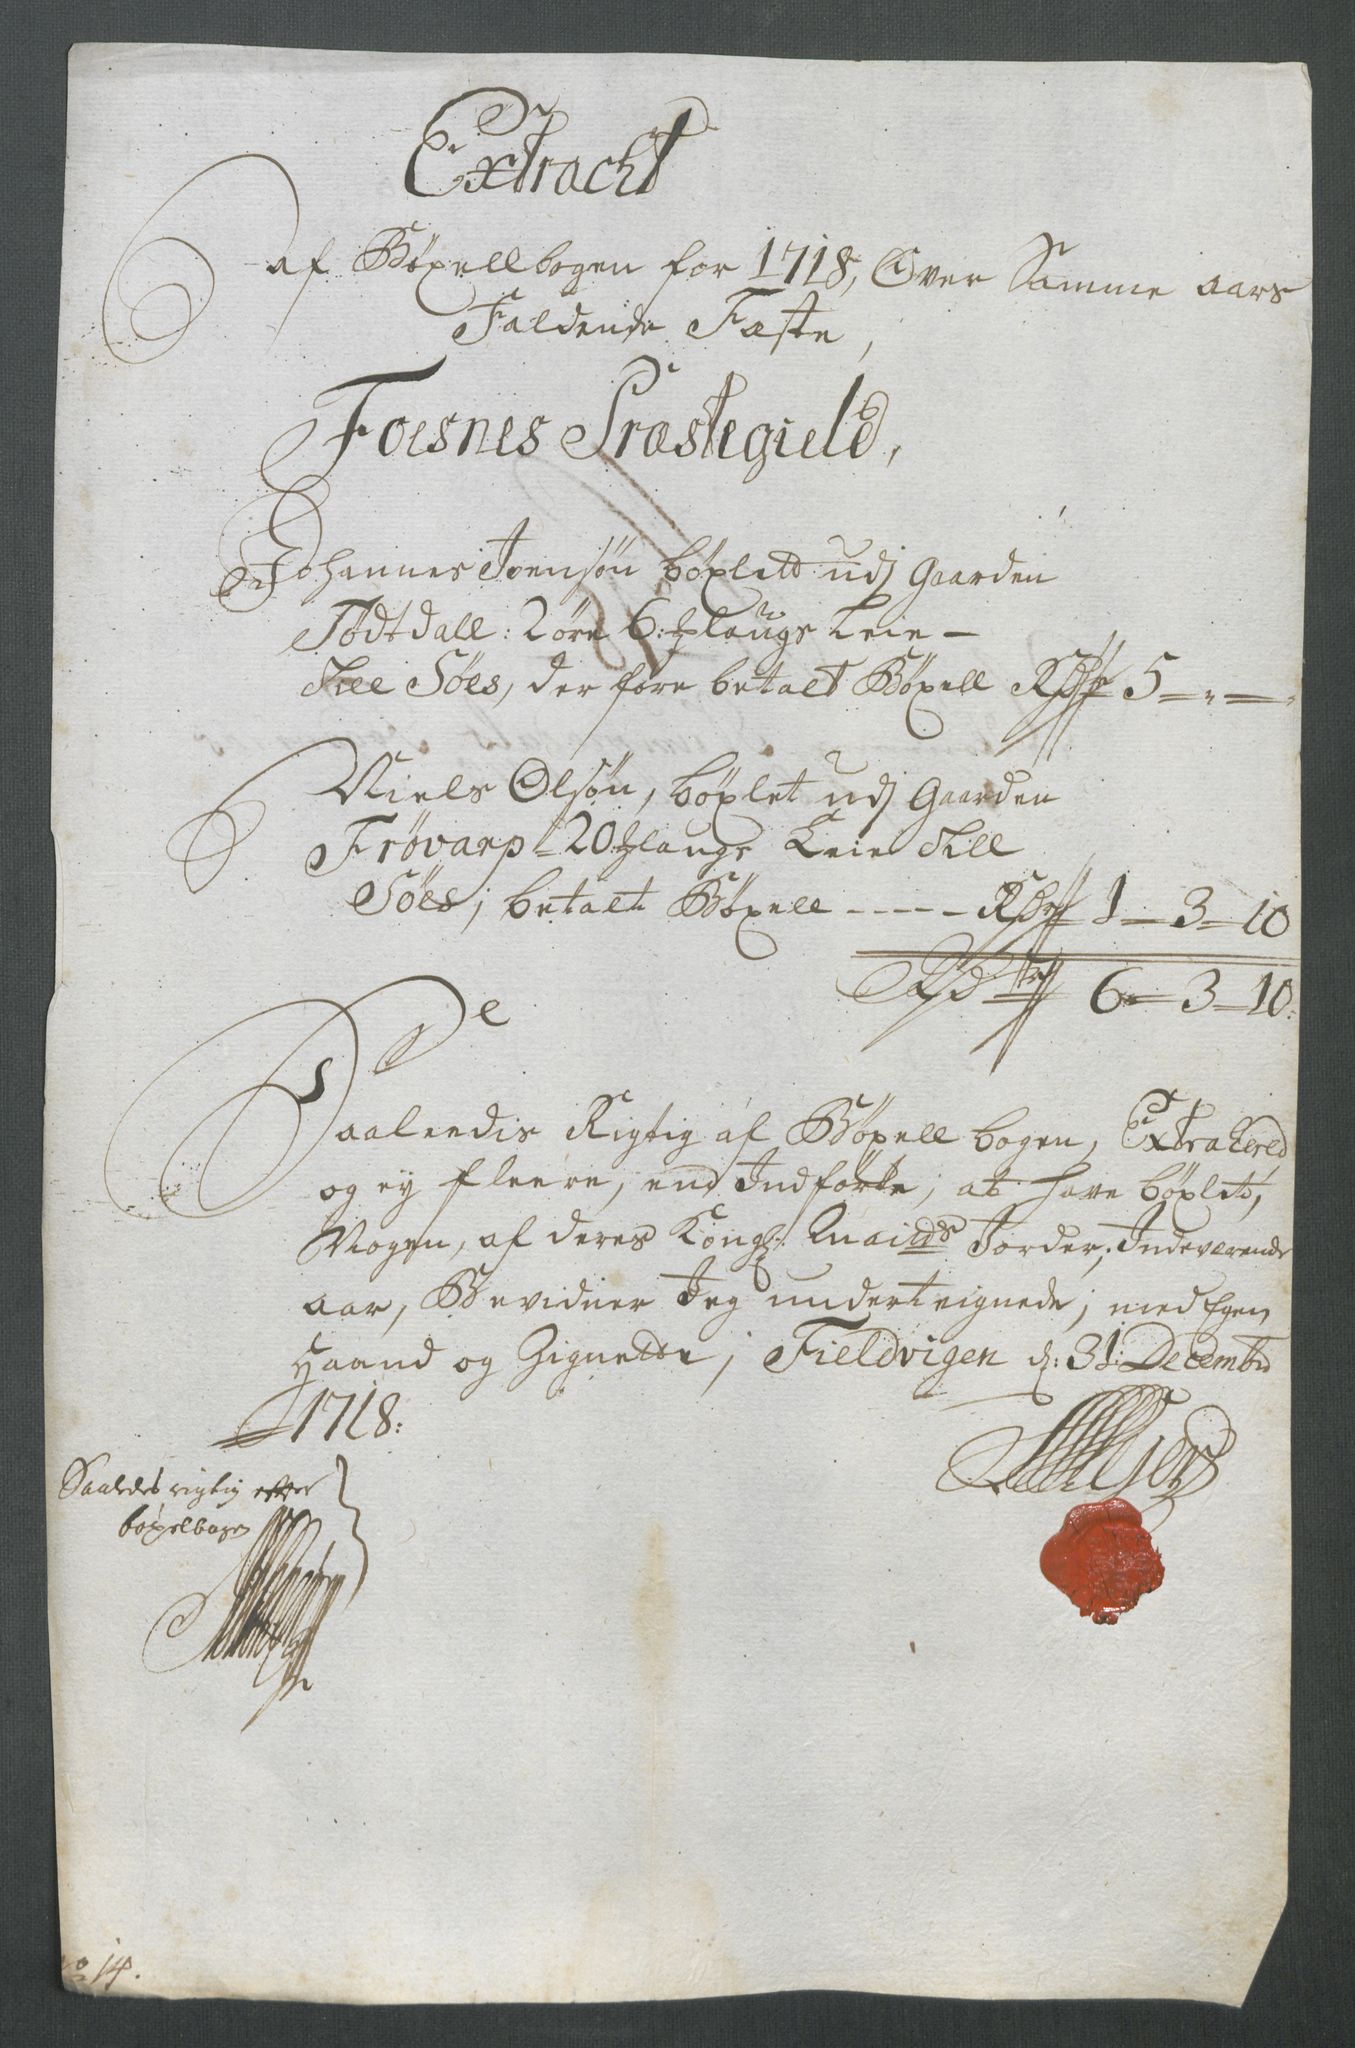 Extracht
af Böxellbogen for 1718, Over Samme aars
Faldende Fæste,
Foesnes Præstegield,
Johannes Joensøn böxlett udj Gaarden
Tødtdall: 2 öre 6: ßlaugs Leie -
Till Söes, der fore betalt Böxell Rdr 5 - " - "
Niels Olsøn, böxlet udj Gaarden
Frøvarp - 20 ßlaugs Leie Till
Söes; betalt Böxell - - - - Rdr 1 - 3 - 10
Rdr 6 - 3 - 10:
Saaledis Rigtig af Böxell bogen, Extraherd
og ey fleere, end Indförte, at have böxlet,
Nogen, af deres Kongl: Maitds Jorder, Indeværende
aar, Bevidner Jeg underteignede; med Egen
Haand og Zignette; Fieldvigen d: 31: Decembr
1718:
Saaledes rigtig efter
böxelbogen
No 14.